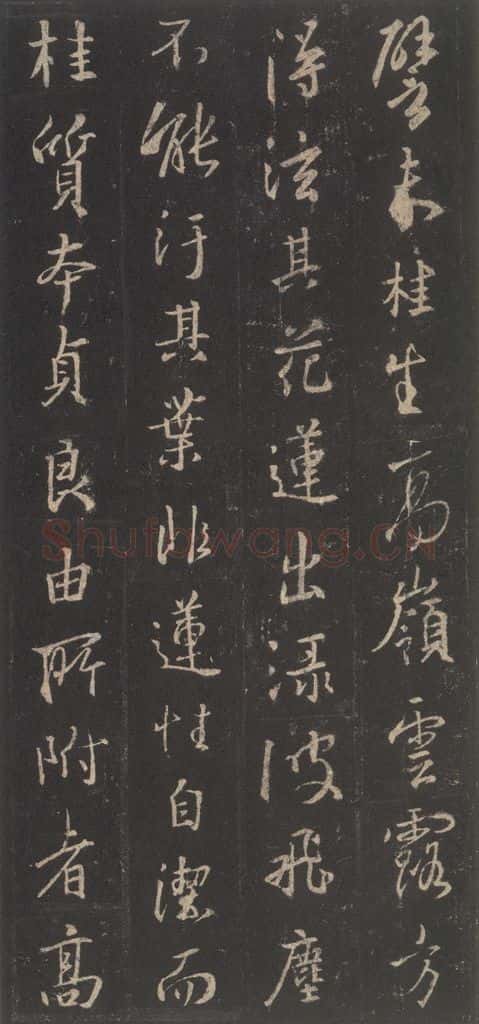 譬夫桂生高嶺雲露方
得泫其花蓮出淥波飛塵
不能汙其葉非蓮性自潔而
桂質本貞良由所附者高
Shufawang.CN